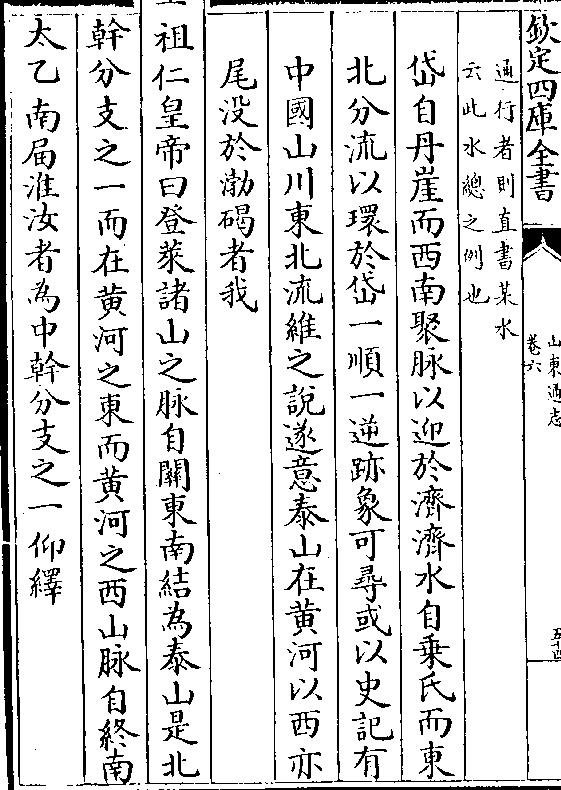 欽定四庫全書
山東通志
卷六
五十四
通行者則直書某水
云此水總之例也
岱自丹崖而西南聚脉以迎於濟濟水自乗氏而東
北分流以環於岱一順一逆跡象可尋或以史記有
中國山川東北流維之說遂意泰山在黄河以西亦
尾没於渤碣者我
祖仁皇帝曰登萊諸山之脉自關東南結為泰山是北
幹分支之一而在黄河之東而黄河之西山脉自終南
太乙南屆淮汝者為中幹分支之一仰繹